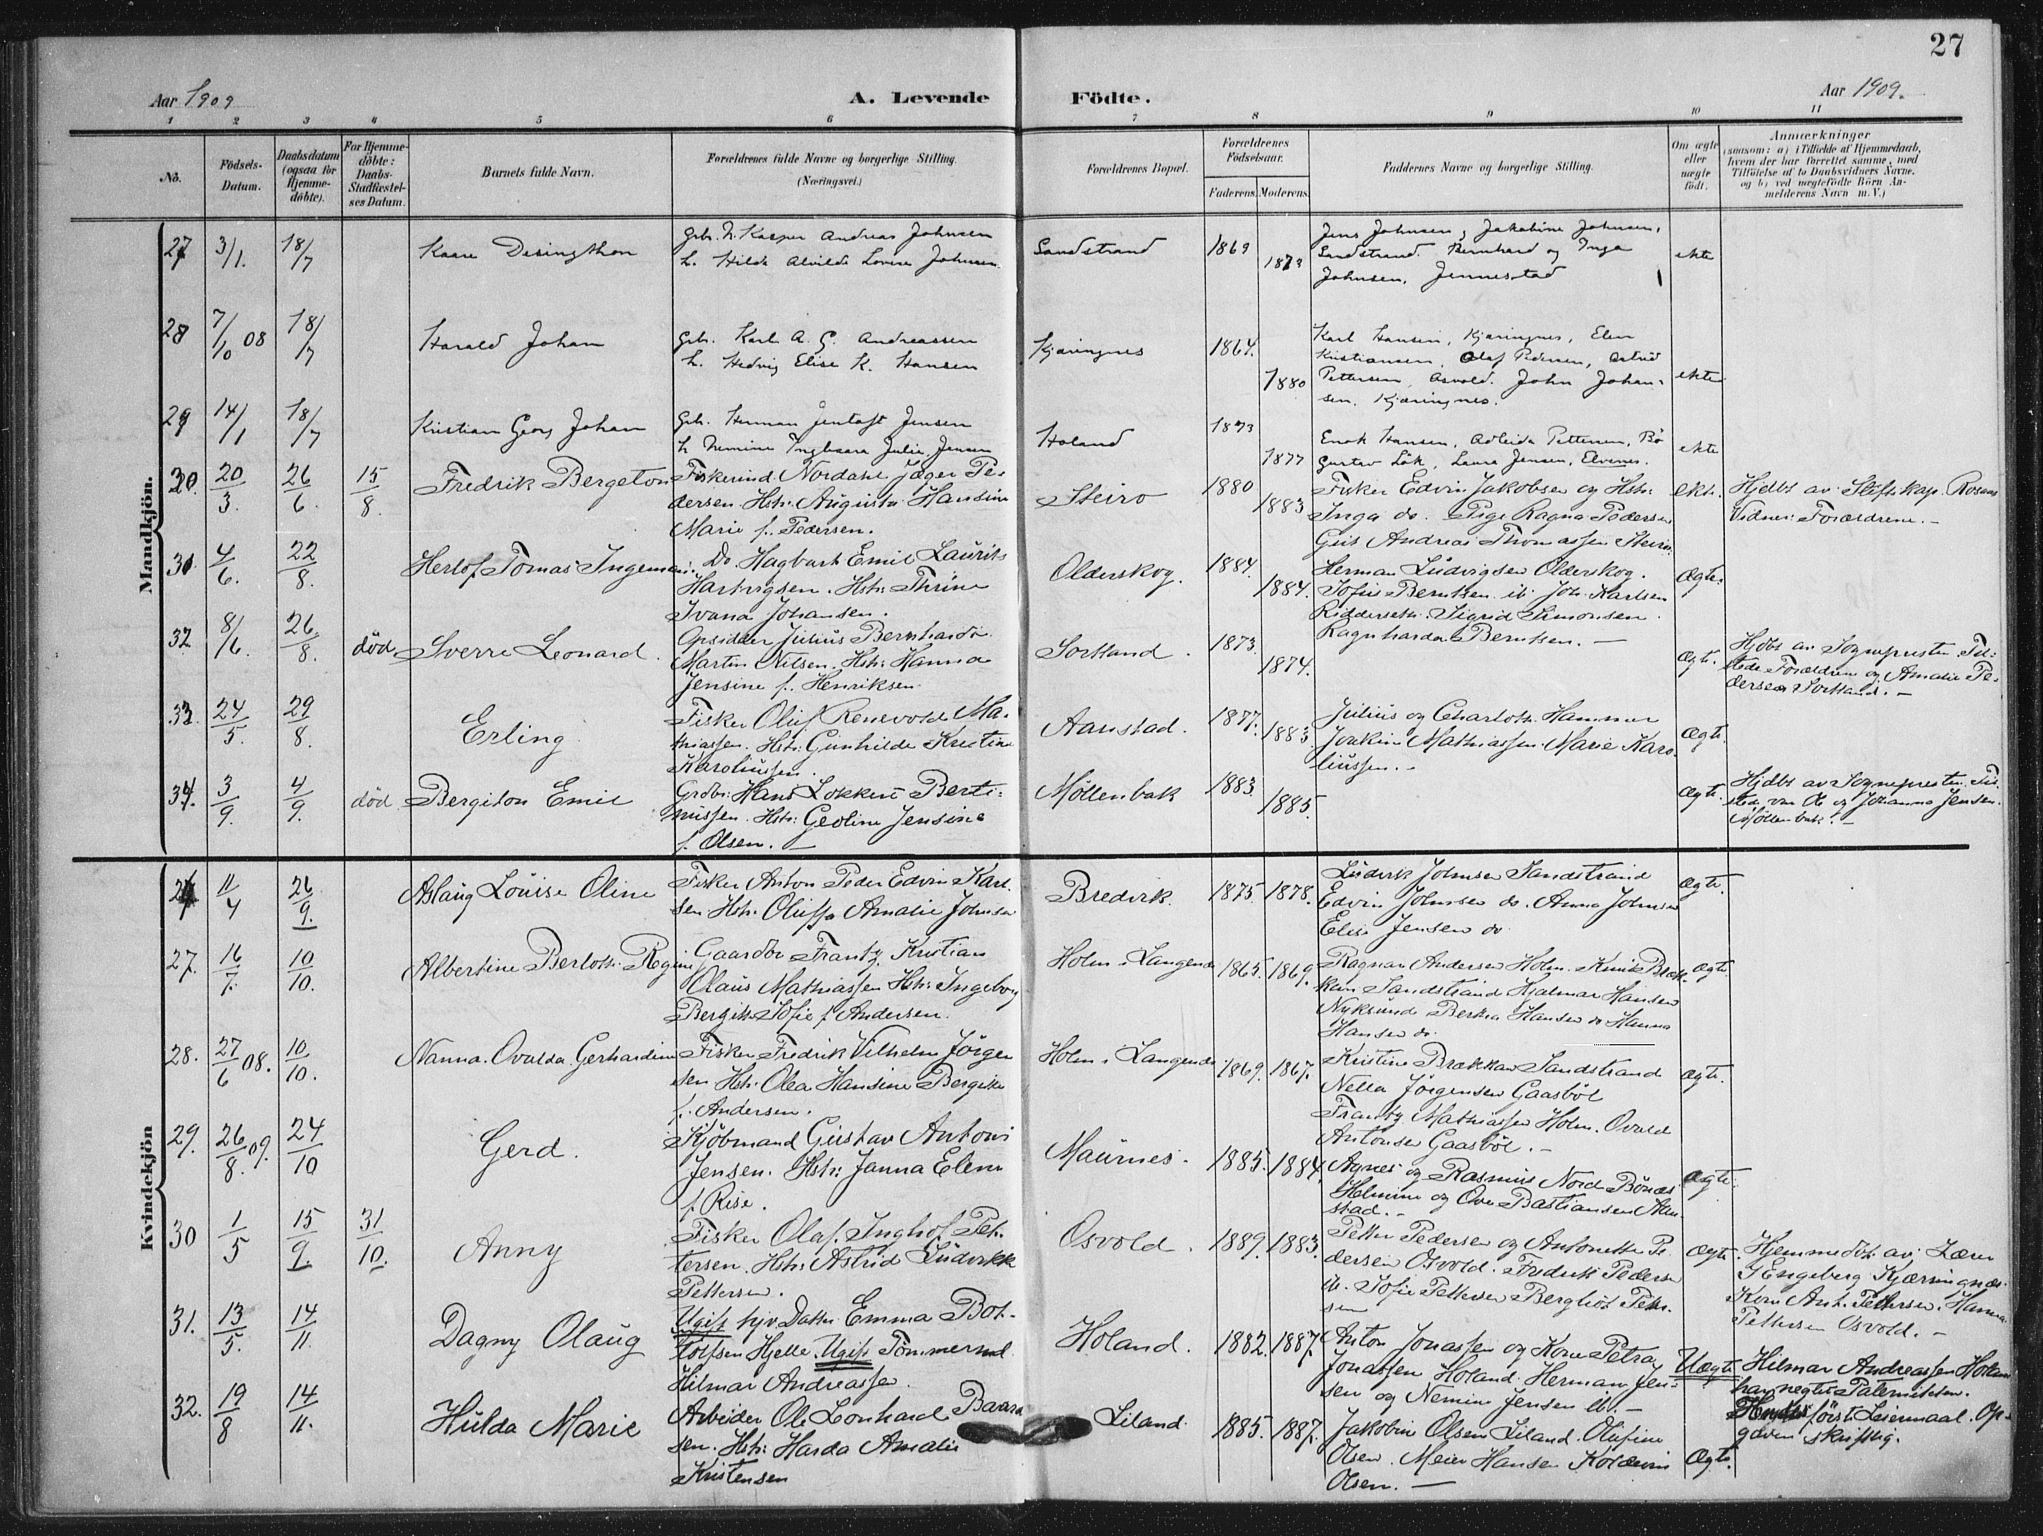 27
Aar 1909
A. Levende
Födte.
Aar 1909.
1 2 3 4 5 6 7 8 9 10 11
No.
Födsels-
Datum.
Daabsdatum
(ogsaa for
Hjemme-
döbte).
For Hjemme-
döbte:
Daabs-
Stadfæstel-
ses Datum.
Barnets fulde Navn.
Forældrenes fulde Navne og borgerlige Stilling.
(Næringsvei.)
Forældrenes Bopæl.
Forældrenes
Födselsaar.
Faderens. Moderens.
Faddernes Navne og borgerlige Stilling.
Om ægte
eller
uægte
födt.
Anmærkninger
(saasom: a) i Tilfælde af Hjemmedaab,
hvem der har forrettet samme, med
Tilföielse af to Daabsvidners Navne,
og b) ved uægtefödte Börn An-
melderens Navn m. V.)
Mandkjön.
27 3/1. 18/7 Kaare
Gbr. Kasper Andreas Johnsen
h. Hilda Alvilde Lovise Johnsen
Sandstrand 1869 1873
Jens Johnsen, Jakobine Johnsen,
Sandstrand. Bernhard og Inga
Johnsen, Jennestad
ekte
28 7/10 08 18/7 Harald Johan
Gbr. Karl A. G. Andreassen
h. Hedvig Elise K. Hansen
Kjæringnes 1864. 1880
Karl Hansen, Kjæringnes, Elen
Kristiansen, Olaf Pedersen, Astrid
Pettersen, Osvold. John Johan-
sen. Kjæringnes.
ekte
29 14/1 18/7 Kristian Georg Johan
Gbr. Herman Jentoft Jensen
h. Nemine Ingebaara Julie Jensen
Holand 1873 1877
Enok Hansen, Adleida Pettersen, Bö
Gustav Lök, Laura Jensen, Elvenes.
ekte
30 20/3 26/6 15/8 Fredrik Bergeton
Fiskerind. Nordahl Jæger Pe-
dersen. Hstr: Augusta Hansine
Marie f. Pedersen.
Steiro 1880 1883
Fisker Edvin Jakobsen og Hstr:
Inga do. Pige Ragna Pedersen
Gut Andreas Thomassen Steiro
ekt.
Hjdbt av Stiftskap.
Vidner: Forældrene. -
31 4/6. 22/8. Herlof Tomas Ingeman
Do. Hagbart Emil Laurits
Hartvigsen. Hstr: Thrine
Ivana Johansen.
Olderskog. 1884. 1884.
Herman Ludvigsen Olderskog.
Sofie Berntsen ib. Joh. Karlsen
Ridderseth. Sigrid Simonsen.
Ragnharda Berntsen. -
Ægte.
32 8/6 26/8. död Sverre Leonard.
Opsidder Julius Bernhardi
Martin Nilsen. Hstr: Hanna
Jensine f. Henriksen
Sortland. 1873. 1874.
Ægte.
Hjdbt av Sogneprsten. Til-
stede Forældren og Amalie Pe-
dersen Sortland. -
33. 24/5. 29/8. Erling
Fisker Oluf Renevold Ma-
thiassen. Hstr: Gunhilde Kristine
Karoliussen.
Aanstad. 1877. 1883.
Julius og Charlotte Hammer
Joakim Mathiassen. Marie Karo-
liussen. -
Ægte.
34. 3/9. 4/9. död Bergiton Emil
Grdbr: Hans Lokkert Berti-
nussen. Hstr: Geoline Jensine
f. Olsen. -
Möllenbak 1883. 1885.
Ægte.
Hjdbt av Sogneprsten. Til-
stede var Ole og Johanna Jensen.
Möllenbak. -
Kvindekjön
11/4 26/9. Aslaug Louise Oline
Fisker Anton Peder Edvin Karl-
sen Hstr: Oluffa Amalie Johnsen
Bredvik. 1875 1878.
Ludvik Johnsen Sandstrand
Edvin Johnsen do. Anna Johnsen
Elise Jensen do
Ægte.
27. 16/7. 10/10. Albertine Berlotte Regine
Gaardbr Frantz Kristian
Olaus Mathiassen Hstr: Ingeborg
Bergitte Sofie f. Andersen.
Holm i Langenæs 1865. 1869.
Ragnar Andersen Holm.
Sandstrand Hjalmar Hansen
Nyksund Hansen do Hanna
Hansen do.
Ægte.
28. 27/6 08. 10/10. Nanna. Ovalda. Gerhardine
Fisker Fredrik Vilhelm Jörgen
sen Hstr: Olea Hansine Bergitte
f. Andersen.
Holm i Langenæs 1869. 1867.
Kristine Brækkan Sandstrand
Nella Jörgensen Gaasböl
Frantz Mathiassen Holm. Ovald
Antonsen Gaasböl. -
Ægte.
29. 26/8 09. 24/10 Gerd.
Kjöbmand Gustav Antoni
Jensen. Hstr: Janna Eline
f. Rise.
Maurnes. 1885. 1884.
Agnes og Rasmus Nord Bönes
Helmine og Ove Bastiansen Aan-
stad. -
Ægte.
30 1/5 15/9. 31/10. Anny
Fisker Olaf Inghof Pet-
tersen. Hstr: Astrid Ludvikke
Pettersen.
Osvold. 1889. 1883.
Petter Pedersen og Antonette Pe-
dersen Osvold. Fredrik Pedersen
ib. Sofie Pettersen Berghot Petter-
sen
Ægte.
Hjemmedöbt av Lærer
J Engeberg Kjærringnes
Kone Ant. Pettersen. Hanna
Pettersen Osvold. -
31. 13/5. 14/11. Dagny Olaug
Ugift hjv Datter Emma Bot-
tolfsen Hjelle. Ugift Tömmermd.
Hilmar Andreassen.
Holand. 1882. 1887.
Anton Jonassen og Kone Petra
Jonassen Holand. Herman Jen-
sen og Nemine Jensen ib. -
Uægte
Hilmar Andreassen Holand
har negtet Paterniteten.
förste Leiermaal. Op-
gaven skriftlig.
32. 19/8 14/11. Hulda Marie
Arbeider Ole Leonhard Baard
sen. Hstr: Harda Amalie
Kristensen
Liland. 1885. 1887.
Jakobine Olsen Liland. Olufine
Olsen. Meier Hansen Koldevin
Olsen. -
Ægte.